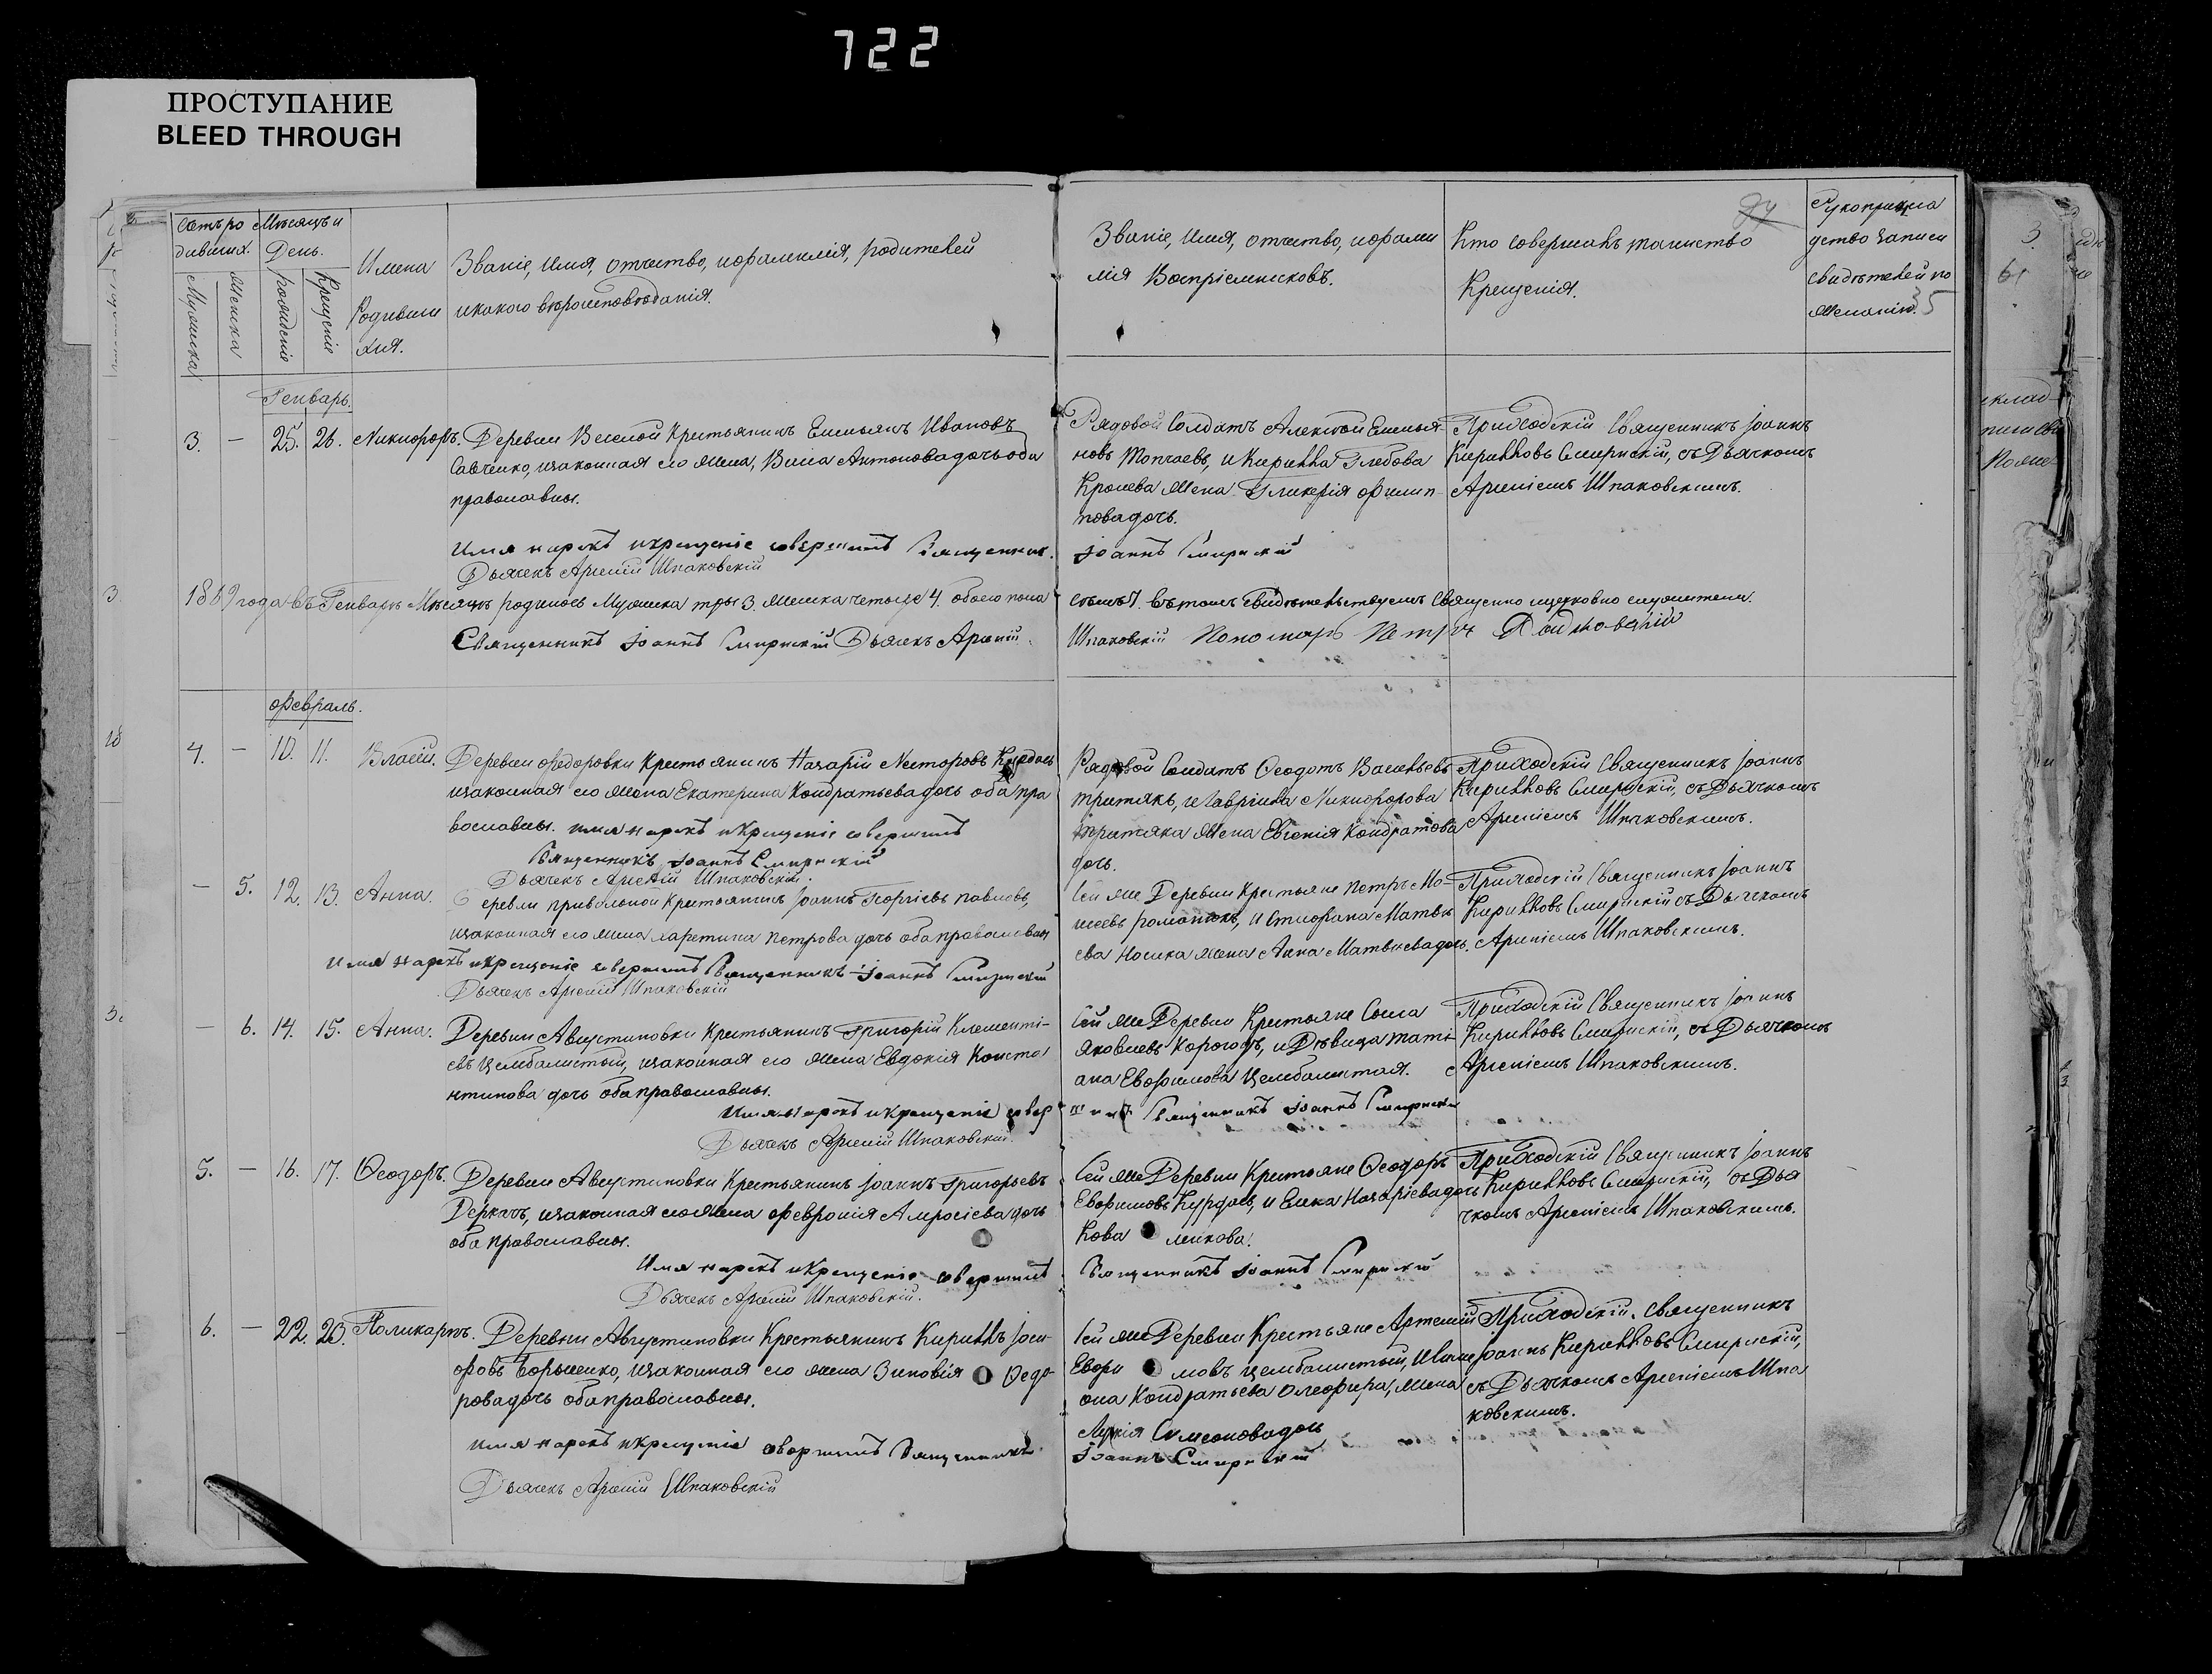 722
ПРОСТУПАНИЕ
BLEED THROUGH
Счетъ ро
дившихъ.
Мѣсяцъ и
День.
Мужеска
Женска
Рожденіе
Крещеніе
Имена
Родивши
хся.
Званіе, имя, отчество, и фамилія, родителей
и какого вѣроисповѣданія.
Званіе, имя, отчество, и фами
лія Воспріемниковъ.
Кто совершалъ таинство
Крещенія.
Рукоприкла
дство записи
свидѣтелей по
желанію.
35
Генварь.
3. — 25. 26. Никифоръ. Деревни Веселой Крестьянинъ Емельянъ Ивановъ
Савченко, и законная его жена, Васса Антонова дочь оба
православны.
Рядовой Солдатъ Алексѣй Емелья
новъ Топчаевъ, и Кирилла Глебова
жена Гликерія Филип
пова дочь.
Приходскій Священникъ Іоаннъ
Кирилловъ Смирнскій, съ Дьячкомъ
Арсеніемъ Шпаковскимъ.
Имя нарекъ и крещеніе совершилъ Священник.
Іоаннъ Смирнскій
Дьячекъ Арсеній Шпаковскій
1869 года въ Генварѣ Мѣсяцѣ родилось Мужеска три 3. Женска четыре 4. обоего пола
семь 7. въ томъ свидѣтельствуемъ Священно и церковно служители.
Священникъ Іоаннъ Смирнскій Дьячекъ Арсеній
Шпаковскій Пономарь Петръ
Февраль.
4. — 10. 11. Власій. Деревни Федоровки Крестьянинъ Назарій Несторовъ
и законная его жена Екатерина Кондратьева дочь оба пра
вославны. имя нарекъ и крещеніе совершилъ
Священникъ Іоаннъ Смирнскій
Дьячекъ Арсеній Шпаковскій.
Рядовой Солдатъ Ѳеодотъ Васильевъ
Притякъ, и Гавріила Никифорова
Притяка жена Евгенія Кондратова
дочь.
Приходскій Священникъ Іоаннъ
Кирилловъ Смирнскій, съ Дьячкомъ
Арсеніемъ Шпаковскимъ.
— 5. 12. 13. Анна. Деревни Привольной Крестьянинъ Іоаннъ Георгіевъ Павловъ,
и законная его жена Харетина Петрова дочь оба православны
Имя нарекъ и крещеніе совершилъ Священникъ Іоаннъ Смирнскій
Дьячекъ Арсеній Шпаковскій
Сей же Деревни Крестьяне Петръ Мо-
исеевъ Романюкъ, и Стефана Матвѣ
ева Носика жена Анна Матвѣева дочь.
Приходскій Священникъ Іоаннъ
Кирилловъ Смирнскій съ Дьячкомъ
Арсеніемъ Шпаковскимъ.
— 6. 14. 15. Анна. Деревни Августиновки Крестьянинъ Григорій Клементі-
евъ Цембалистый, и законная его жена Евдокія Конста
нтинова дочь оба православны.
Имя нарекъ и крещеніе совер
Дьячекъ Арсеній Шпаковскій.
Сей же Деревни Крестьяне Савва
Яковлевъ Корогодъ, и Дѣвица Тати
ана Евфимова Цембалистая.
шилъ Священникъ Іоаннъ Смирнскій
Приходскій Священникъ Іоаннъ
Кирилловъ Смирнскій, съ Дьячкомъ
Арсеніемъ Шпаковскимъ.
5. — 16. 17. Ѳеодоръ. Деревни Августиновки Крестьянинъ Іоаннъ Григорьевъ
Деркачъ, и законная его жена Февронія Амросіева дочь
оба православны.
Имя нарекъ и крещеніе совершилъ
Дьячекъ Арсеній Шпаковскій.
Сей же Деревни Крестьяне Ѳеодоръ
Евфимовъ Курдась, и Елена Назаріева дочь
Кова ленкова.
Священникъ Іоаннъ Смирнскій
Приходскій Священникъ Іоаннъ
Кирилловъ Смирнскій, съ Дья
чкомъ Арсеніемъ Шпаковскимъ.
6. — 22. 23. Поликарпъ. Деревни Августиновки Крестьянинъ Кириллъ Іоси-
фовъ Борысенко, и законная его жена Зиновія Ѳедо-
рова дочь оба православны.
имя нарекъ и крещеніе совершилъ Священникъ
Дьячекъ Арсеній Шпаковскій
Сей же Деревни Крестьяне Артемій
Евфи мовъ Цембалистый, и
она Кондратьева Олефира, жена
Лукія Симеонова дочь
Іоаннъ Смирнскій
Приходскій, Священникъ
Іоаннъ Кирилловъ Смирнскій,
съ Дьячкомъ Арсеніемъ Шпа
ковскимъ.